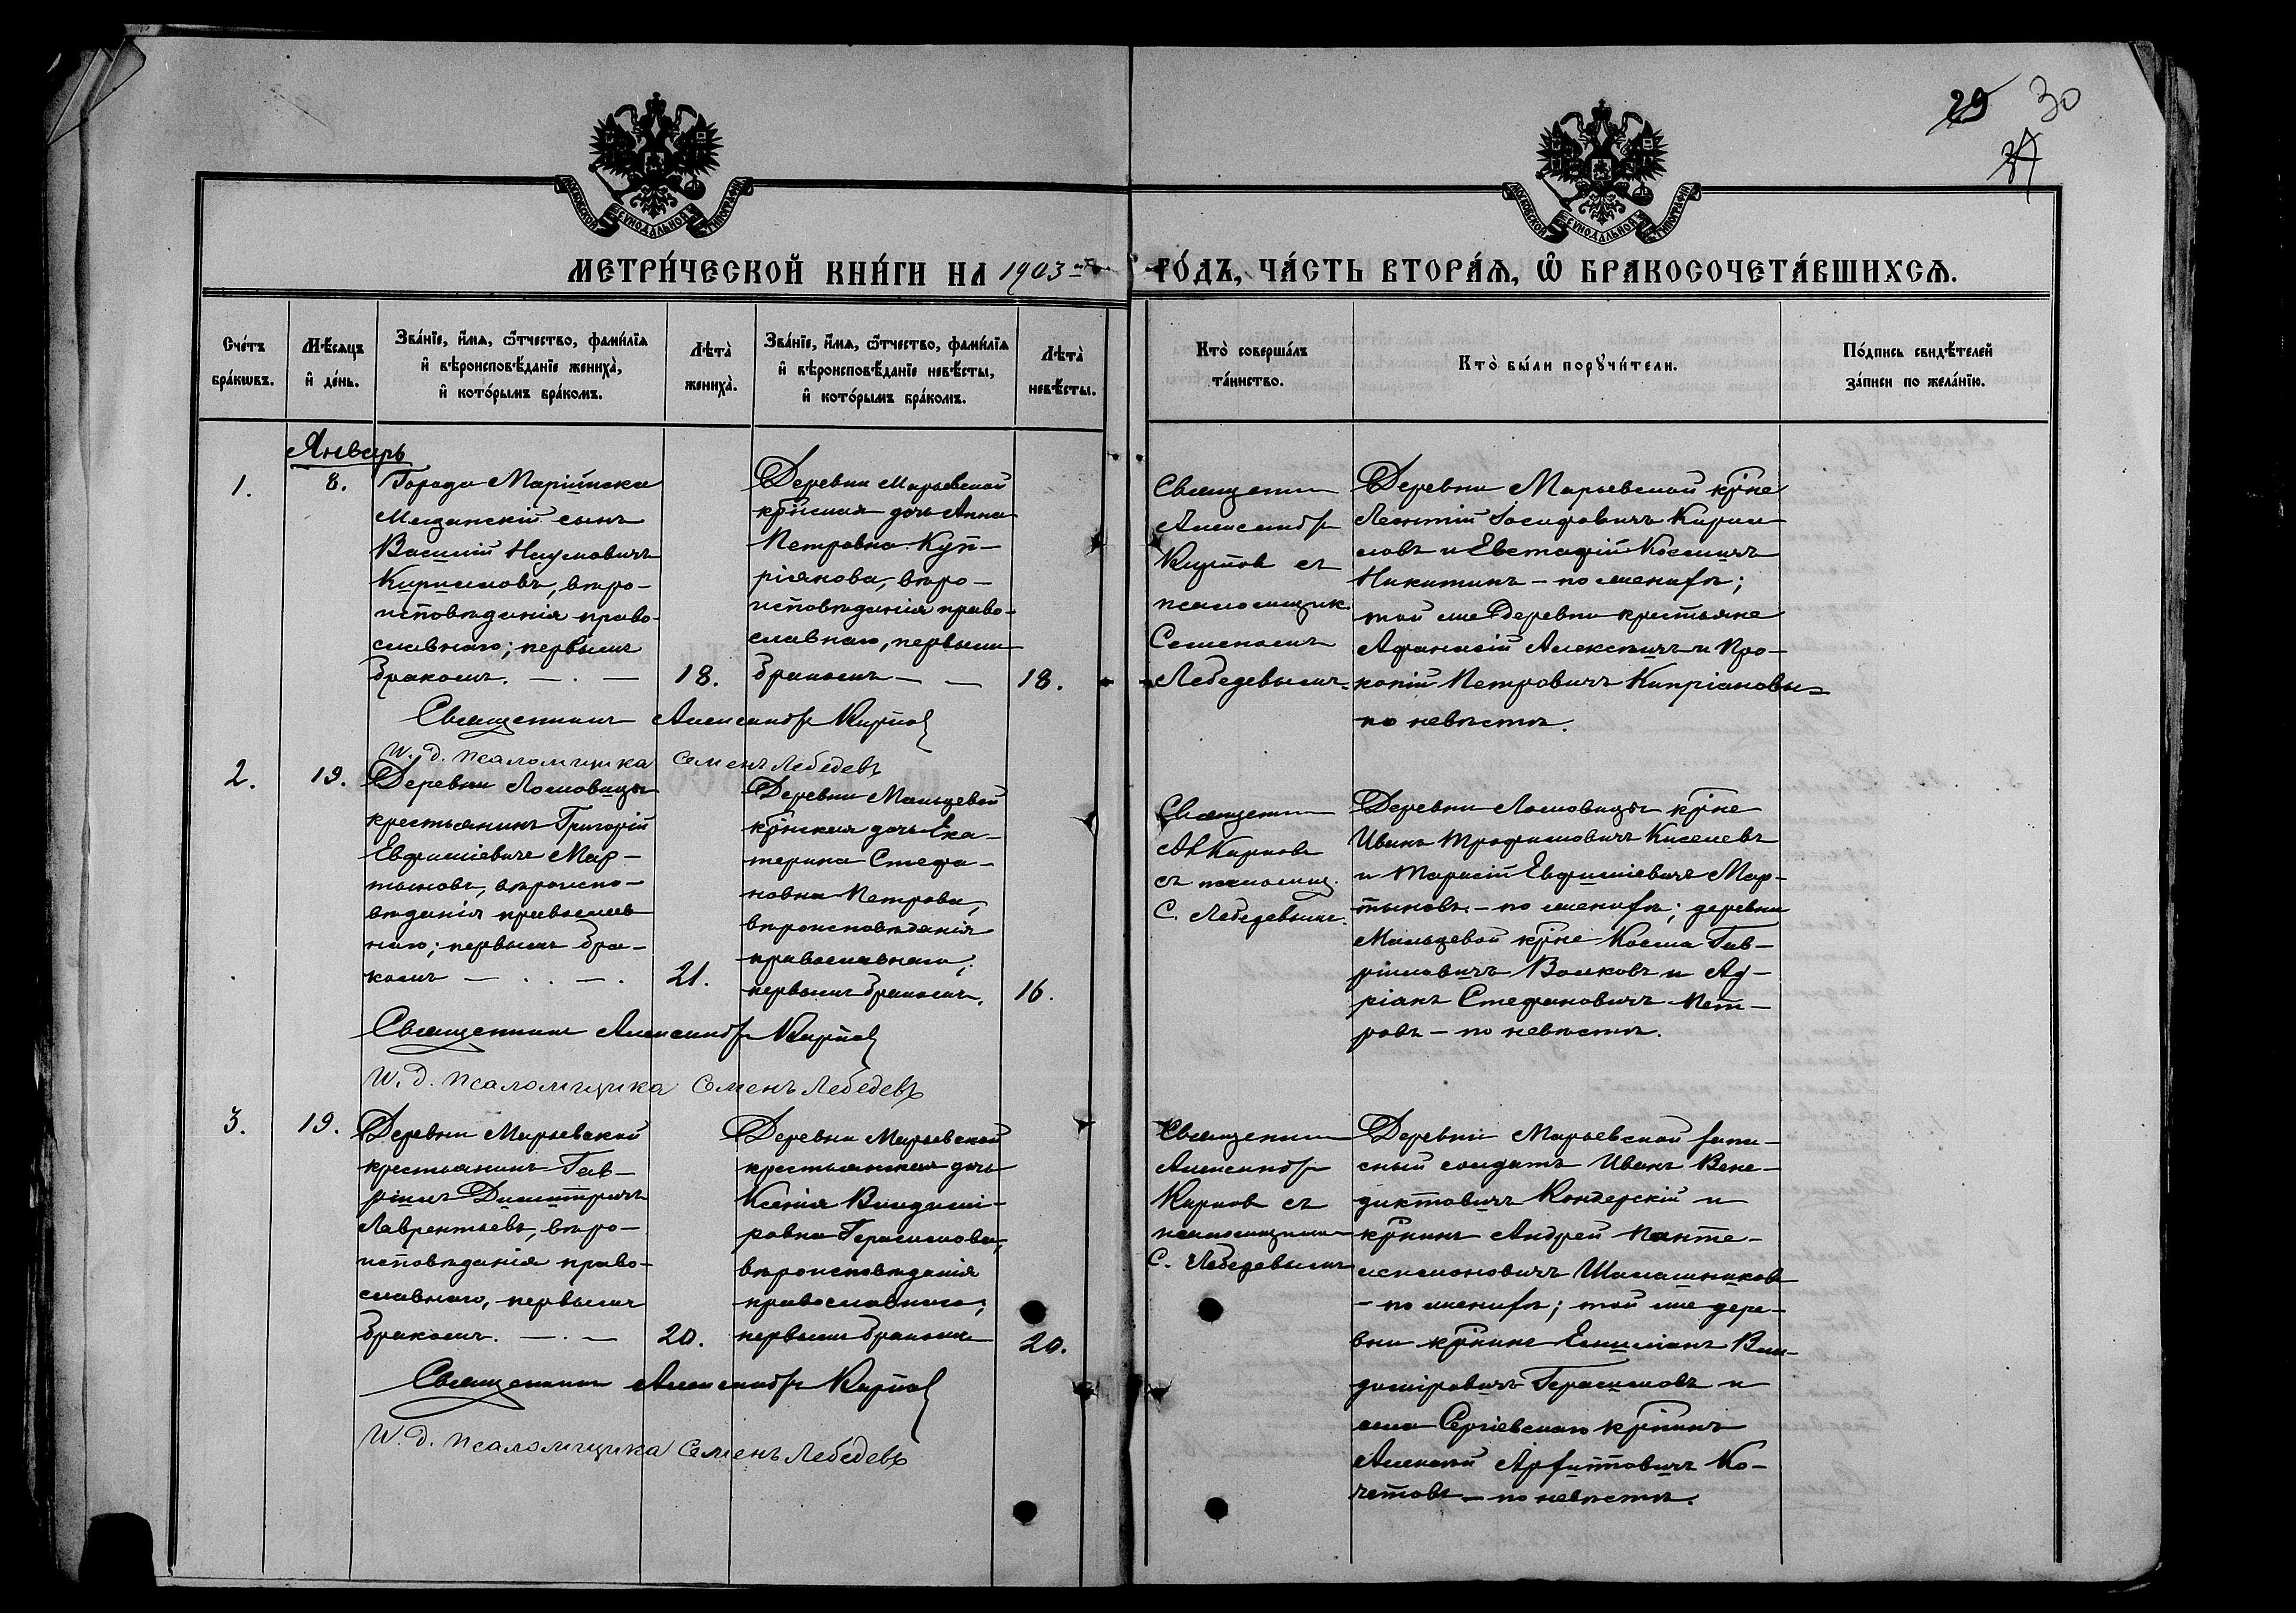 29 30
МОСКОВСКОЙ СУНОДАЛЬНОЙ ТИПОГРАФІИ
МОСКОВСКОЙ СУНОДАЛЬНОЙ ТИПОГРАФІИ
МЕТРИ́ЧЕСКОЙ КНИ́ГИ НА 1903 ГО́ДЪ, ЧА́СТЬ ВТОРА́Ѧ, Ѽ БРАКОСОЧЕТА́ВШИХСѦ.
Сче́тъ бра́кѡвъ.
Мѣ́сѧцъ и҆ де́нь.
Зва́нїе, и҆́мѧ, ѻ҆́тчество, фами́лїѧ и҆ вѣроисповѣ́данїе жениха̀, и҆ кото́рымъ бра́комъ.
Лѣта̀ жениха̀.
Зва́нїе, и҆́мѧ, ѻ҆́тчество, фами́лїѧ и҆ вѣроисповѣ́данїе невѣ́сты, и҆ кото́рымъ бра́комъ.
Лѣта̀ невѣ́сты.
Кто̀ соверша́лъ та́инство.
Кто̀ бы́ли порꙋчи́тели.
По́дпись свидѣ́телей за́писи по жела́нїю.
Январь
1.
8.
Города Маріинска
Мѣщанскій сынъ
Василій Наумовичъ
Кирилловъ, вѣро-
исповѣданія право-
славнаго; первымъ
бракомъ. — . —
18.
Деревни Марьевской
кр̃нская дочь Анна
Петровна Купр-
ріянова, вѣро-
исповѣданія право-
славнаго, первымъ
бракомъ — —
18.
Священник
Александр
Карпов съ
псаломщик.
Семеномъ
Лебедевымъ
Деревни Марьевской кр̃не
Леонтій Іосифовичъ Кирил-
ловъ и Евстафій Космичъ
Никитинъ - по женихѣ;
той же деревни крестьяне
Афанасій Алексѣичъ и Про-
копій Петровичъ Кипріановы-
по невѣстѣ.
Священникъ Александр Карпов
И. д. псаломщика Семенъ Лебедевъ
2.
19.
Деревни Ломовицы
крестьянинъ Григорій
Евфиміевичъ Мар-
тыновъ, вѣроиспо-
вѣданія православ-
наго; первымъ бра-
комъ — . . — .
21.
Деревни Мальцевой
кр̃нская дочь Ека-
терина Стефа-
новна Петрова,
вѣроисповѣданія
православнаго;
первымъ бракомъ.
16.
Священник
Ал Карпов
съ псаломщ.
С. Лебедевымъ.
Деревни Ломовицы кр̃не
Иванъ Трофимовичъ Киселевъ
и Тарасій Евфиміевичъ Мар-
тыновъ - по женихѣ; деревни
Мальцевой кр̃не Косма Гав-
ріиловичъ Волковъ и Ад-
ріанъ Стефановичъ Пет-
ровъ - по невѣстѣ.
Священник Александр Карпов
И. д. псаломщика Семенъ Лебедевъ
3.
19.
Деревни Марьевской
крестьянинъ Гав-
ріилъ Димитричъ
Лаврентьевъ, вѣро-
исповѣданія право-
славнаго, первымъ
бракомъ. — . —
20.
Деревни Марьевской
крестьянская дочь
Ксенія Владими-
ровна Герасимова,
вѣроисповѣданія
православнаго;
первымъ бракомъ
20.
Священник
Александр
Карпов съ
псаломщикомъ
С. Лебедевымъ
Деревни Марьевской запа-
сный солдатъ Иванъ Вене-
диктовичъ Кондерскій и
кр̃нинъ Андрей Панте-
леимоновичъ Шалашников
- по женихѣ; той же дере-
вни кр̃нинъ Емиліанъ Вла-
диміровичъ Герасимовъ и
села Сергіевскаго кр̃нинъ
Алексѣй Архиповичъ Ко-
четовъ - по невѣстѣ.
Священник Александр Карпов
И. д. псаломщика Семенъ Лебедевъ